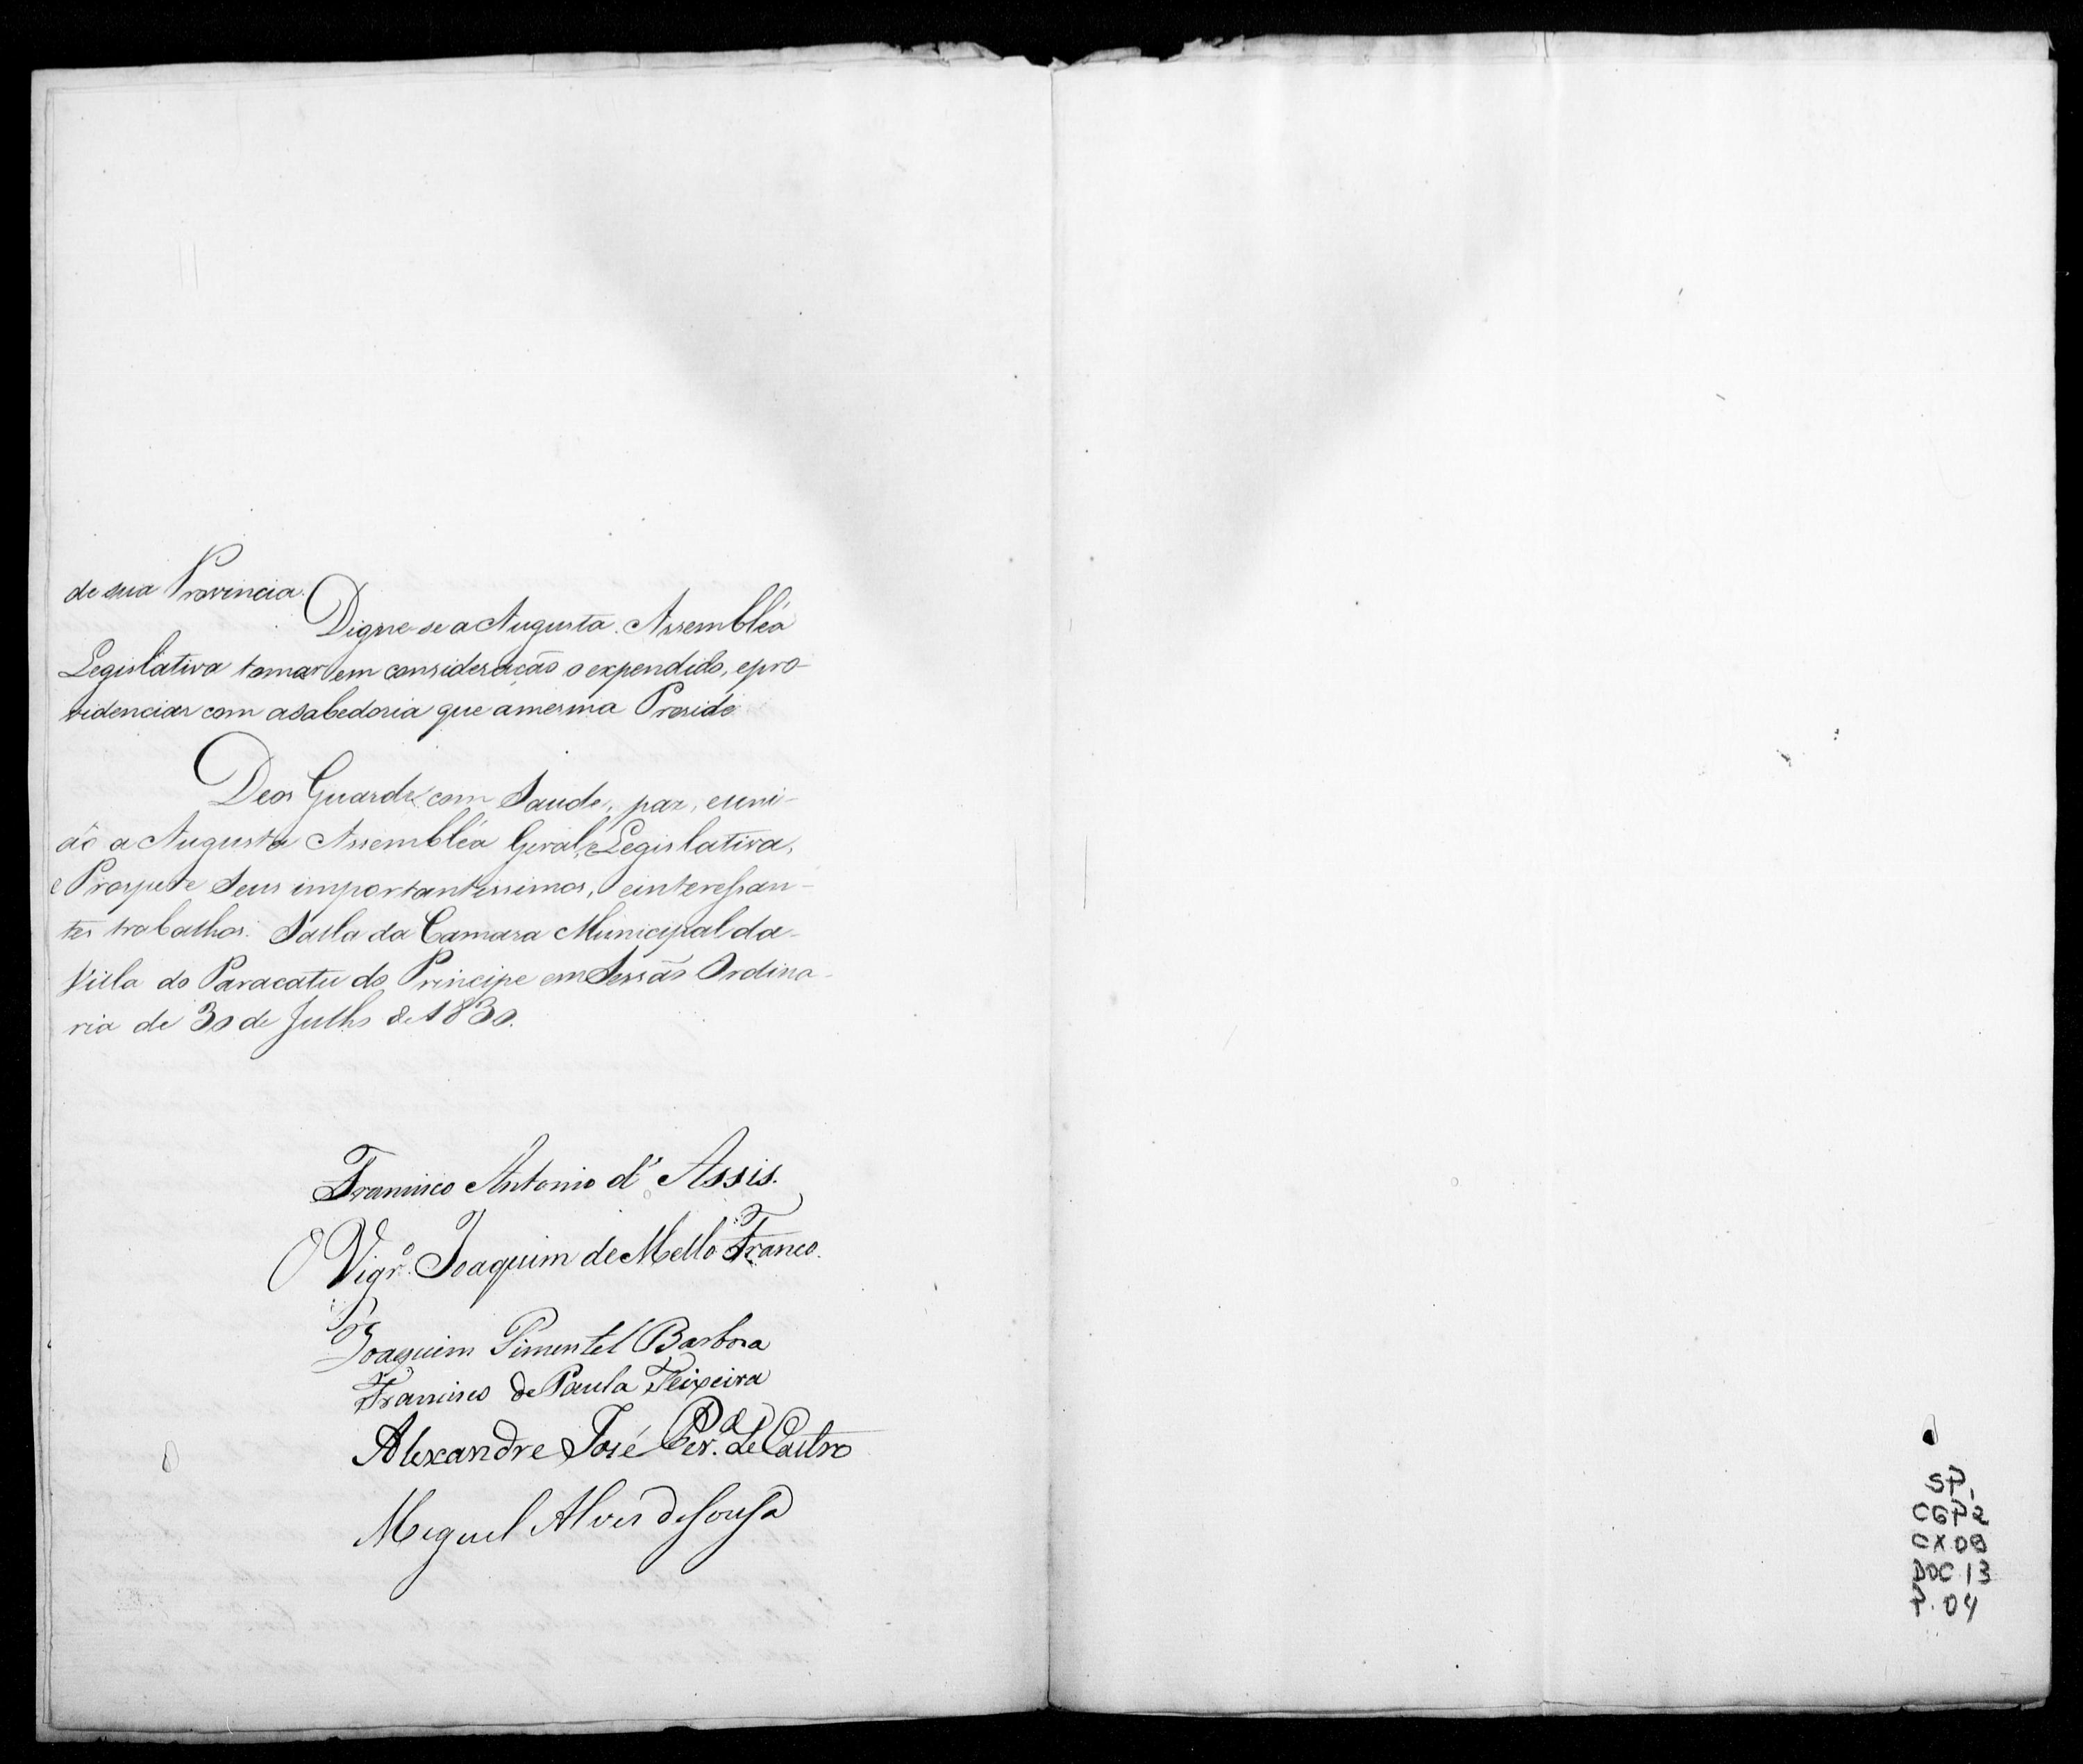 de sua Provincia.
Digne-se a Augusta Assembléa
Legislativa tomar em consideração o expendido, e pro-
videnciar com a Sabedoria que á mesma Preside
Deos Guarde com Saude, paz, e uni-
ão a Augusta Assembléa Geral, Legislativa,
e Prospere Seus importantissimos, e interessan-
tes trabalhos. Salla da Camara Municipal da
Villa do Paracatu do Principe em Sessão Ordina-
ria de 30 de Julho de 1830.
Francisco Antonio d'Assis.
O Vigr.º Joaquim de Mello Franco.
Joaquim Pimentel Barbosa
Francisco de Paula Teixeira
Alexandre José Per.ª de Castro
Miguel Alves de Sousa
SP.
CGP2
CX 08
DOC 13
P. 04